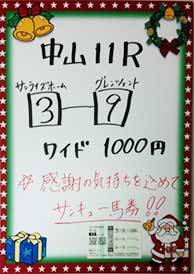 中山11R
サンライズホーム グレンツェント
3-9
ワイド 1000円
☆感謝の気持ちを込めて
サンキュー馬券!!